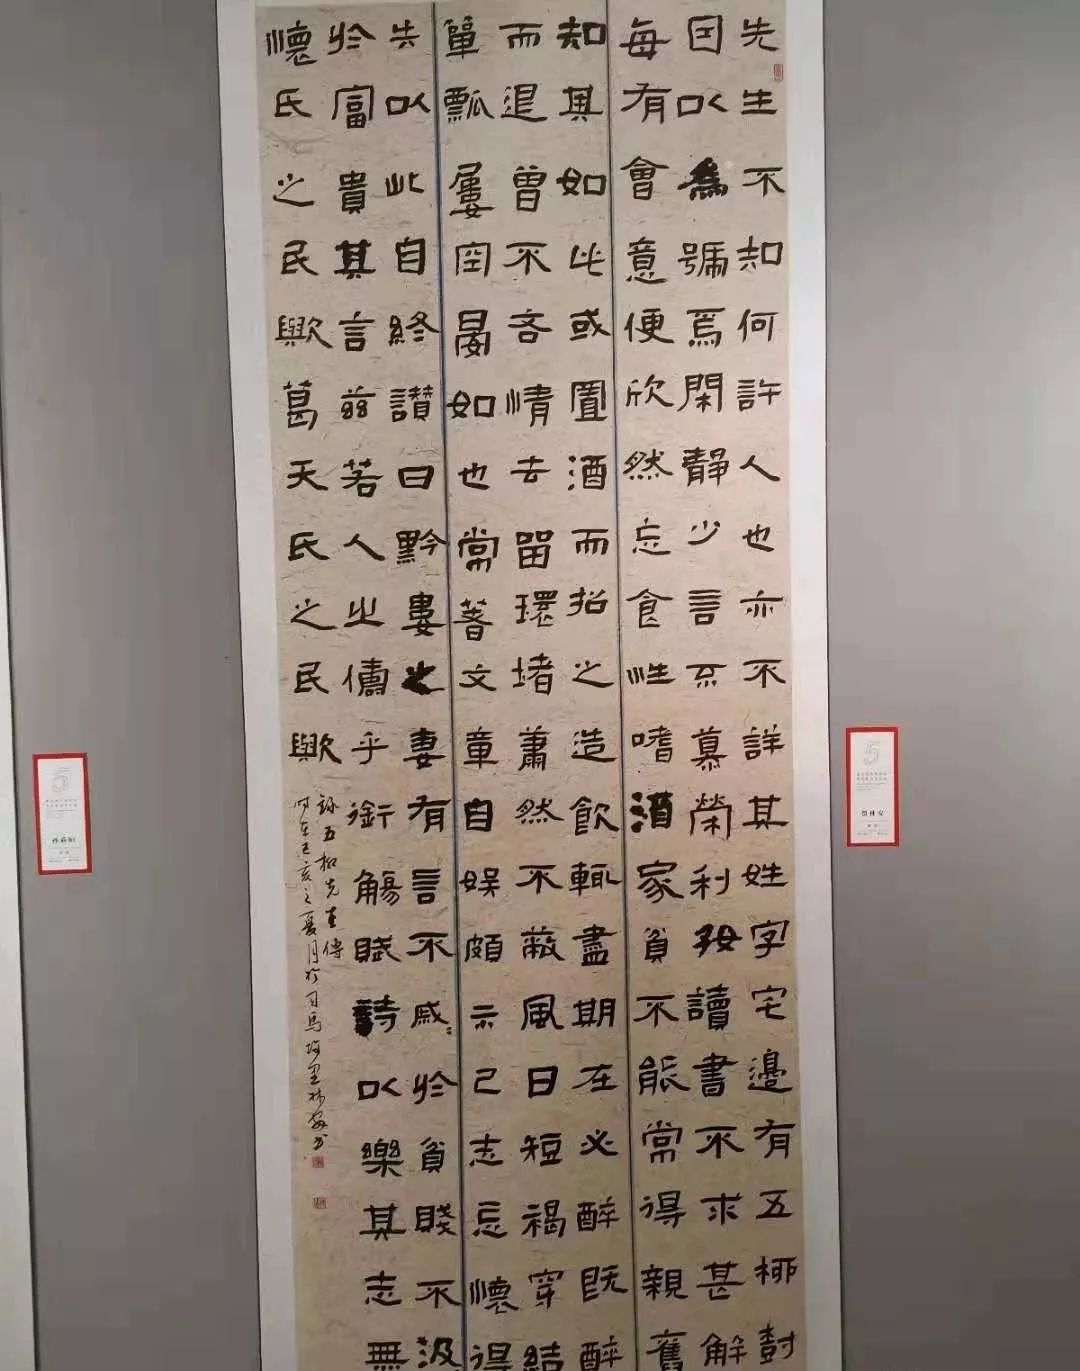 先生不知何許人也亦不詳其姓字宅邊有五柳樹
因以為號焉閑靜少言不慕榮利好讀書不求甚解
每有會意便欣然忘食性嗜酒家貧不能常得親舊
知其如此或置酒而招之造飲輒盡期在必醉既醉
而退曾不吝情去留環堵蕭然不蔽風日短褐穿結
簞瓢屢空晏如也常著文章自娛頗示己志忘懷得
失以此自終讚曰黔婁之妻有言不戚戚於貧賤不汲
於富貴其言茲若人之儔乎銜觴賦詩以樂其志無
懷氏之民歟葛天氏之民歟
錄五柳先生傳
時在己亥之夏月於司馬林安書
5
5